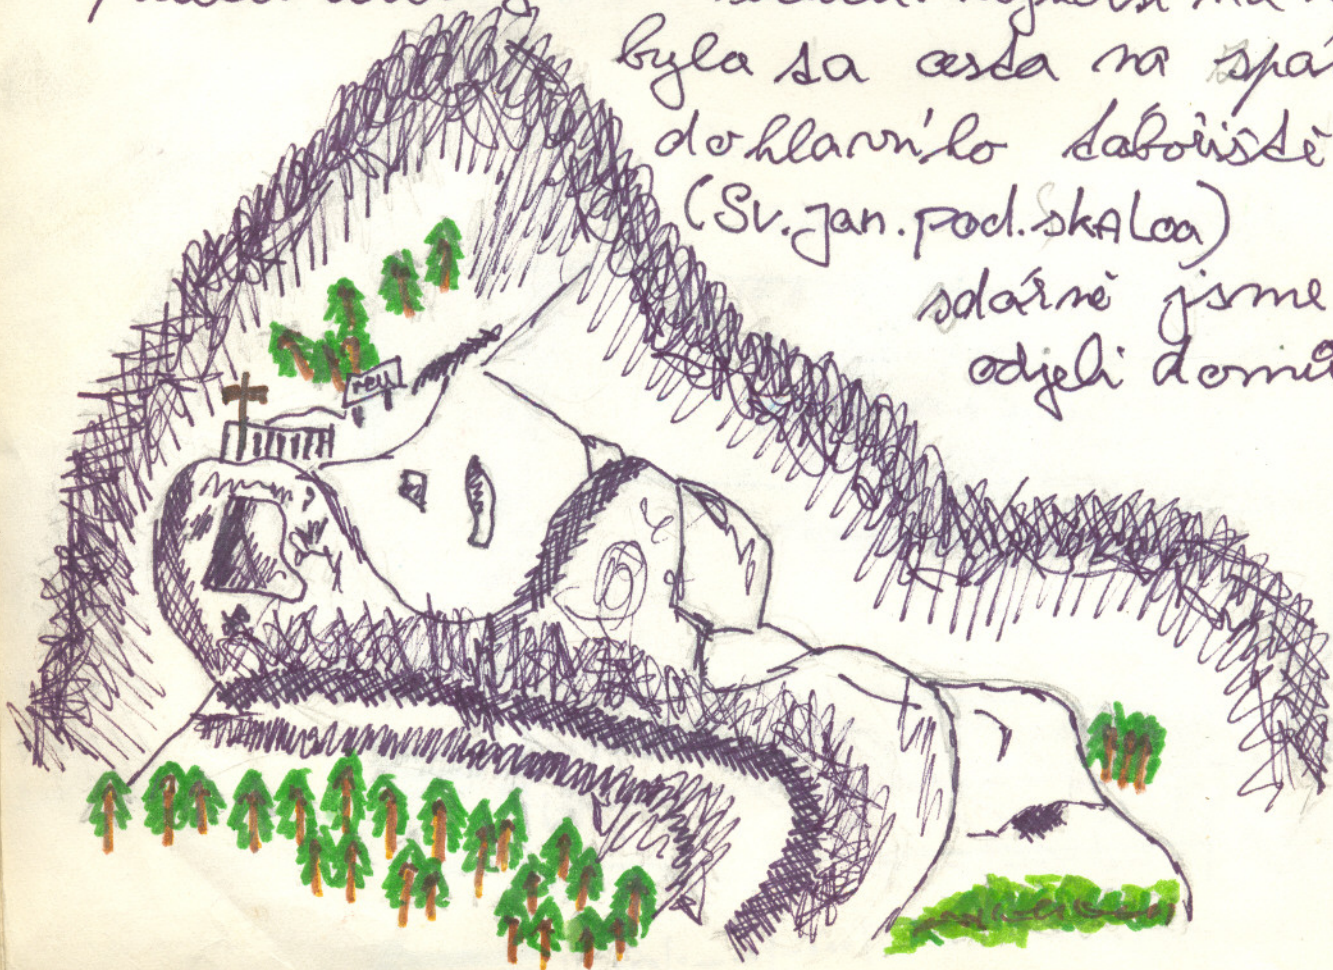 byla ta cesta na spá
do hlavního tábořiště
(Sv.jan.pod.skALou)
zdárně jsme
odjeli domů